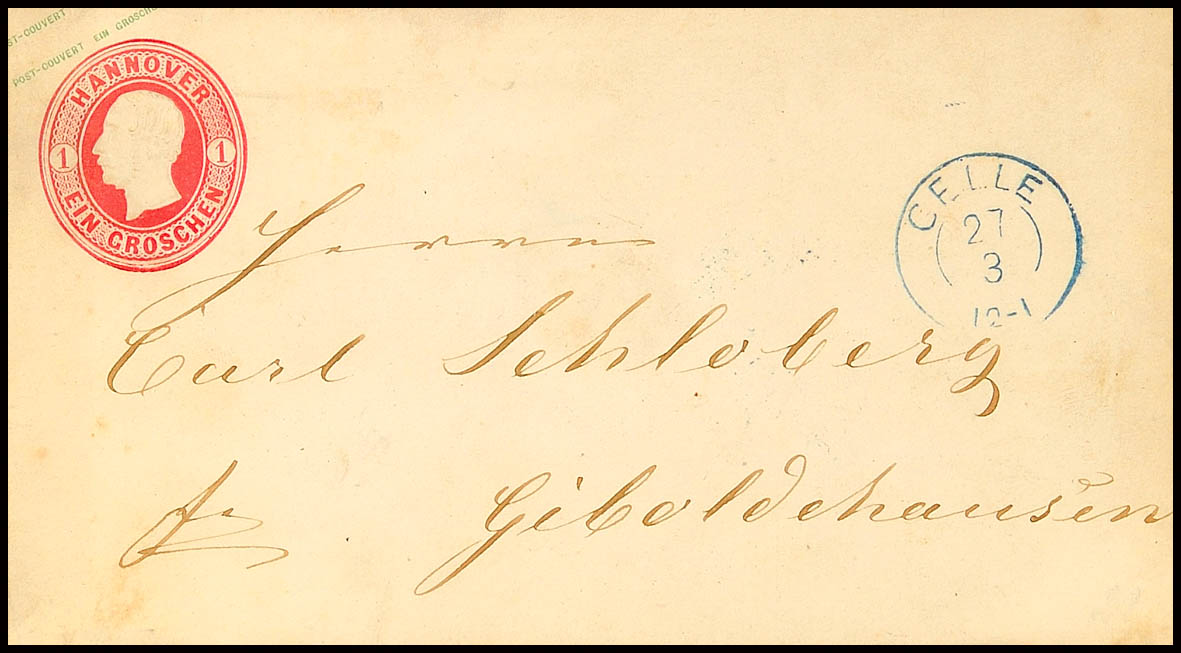 ST-COUVERT
POST-COUVERT EIN GROSCHE
HANNOVER
1 1
EIN GROSCHEN
CELLE
27
3
12-1
Herrn
Carl Schloberg
Giboldehausen